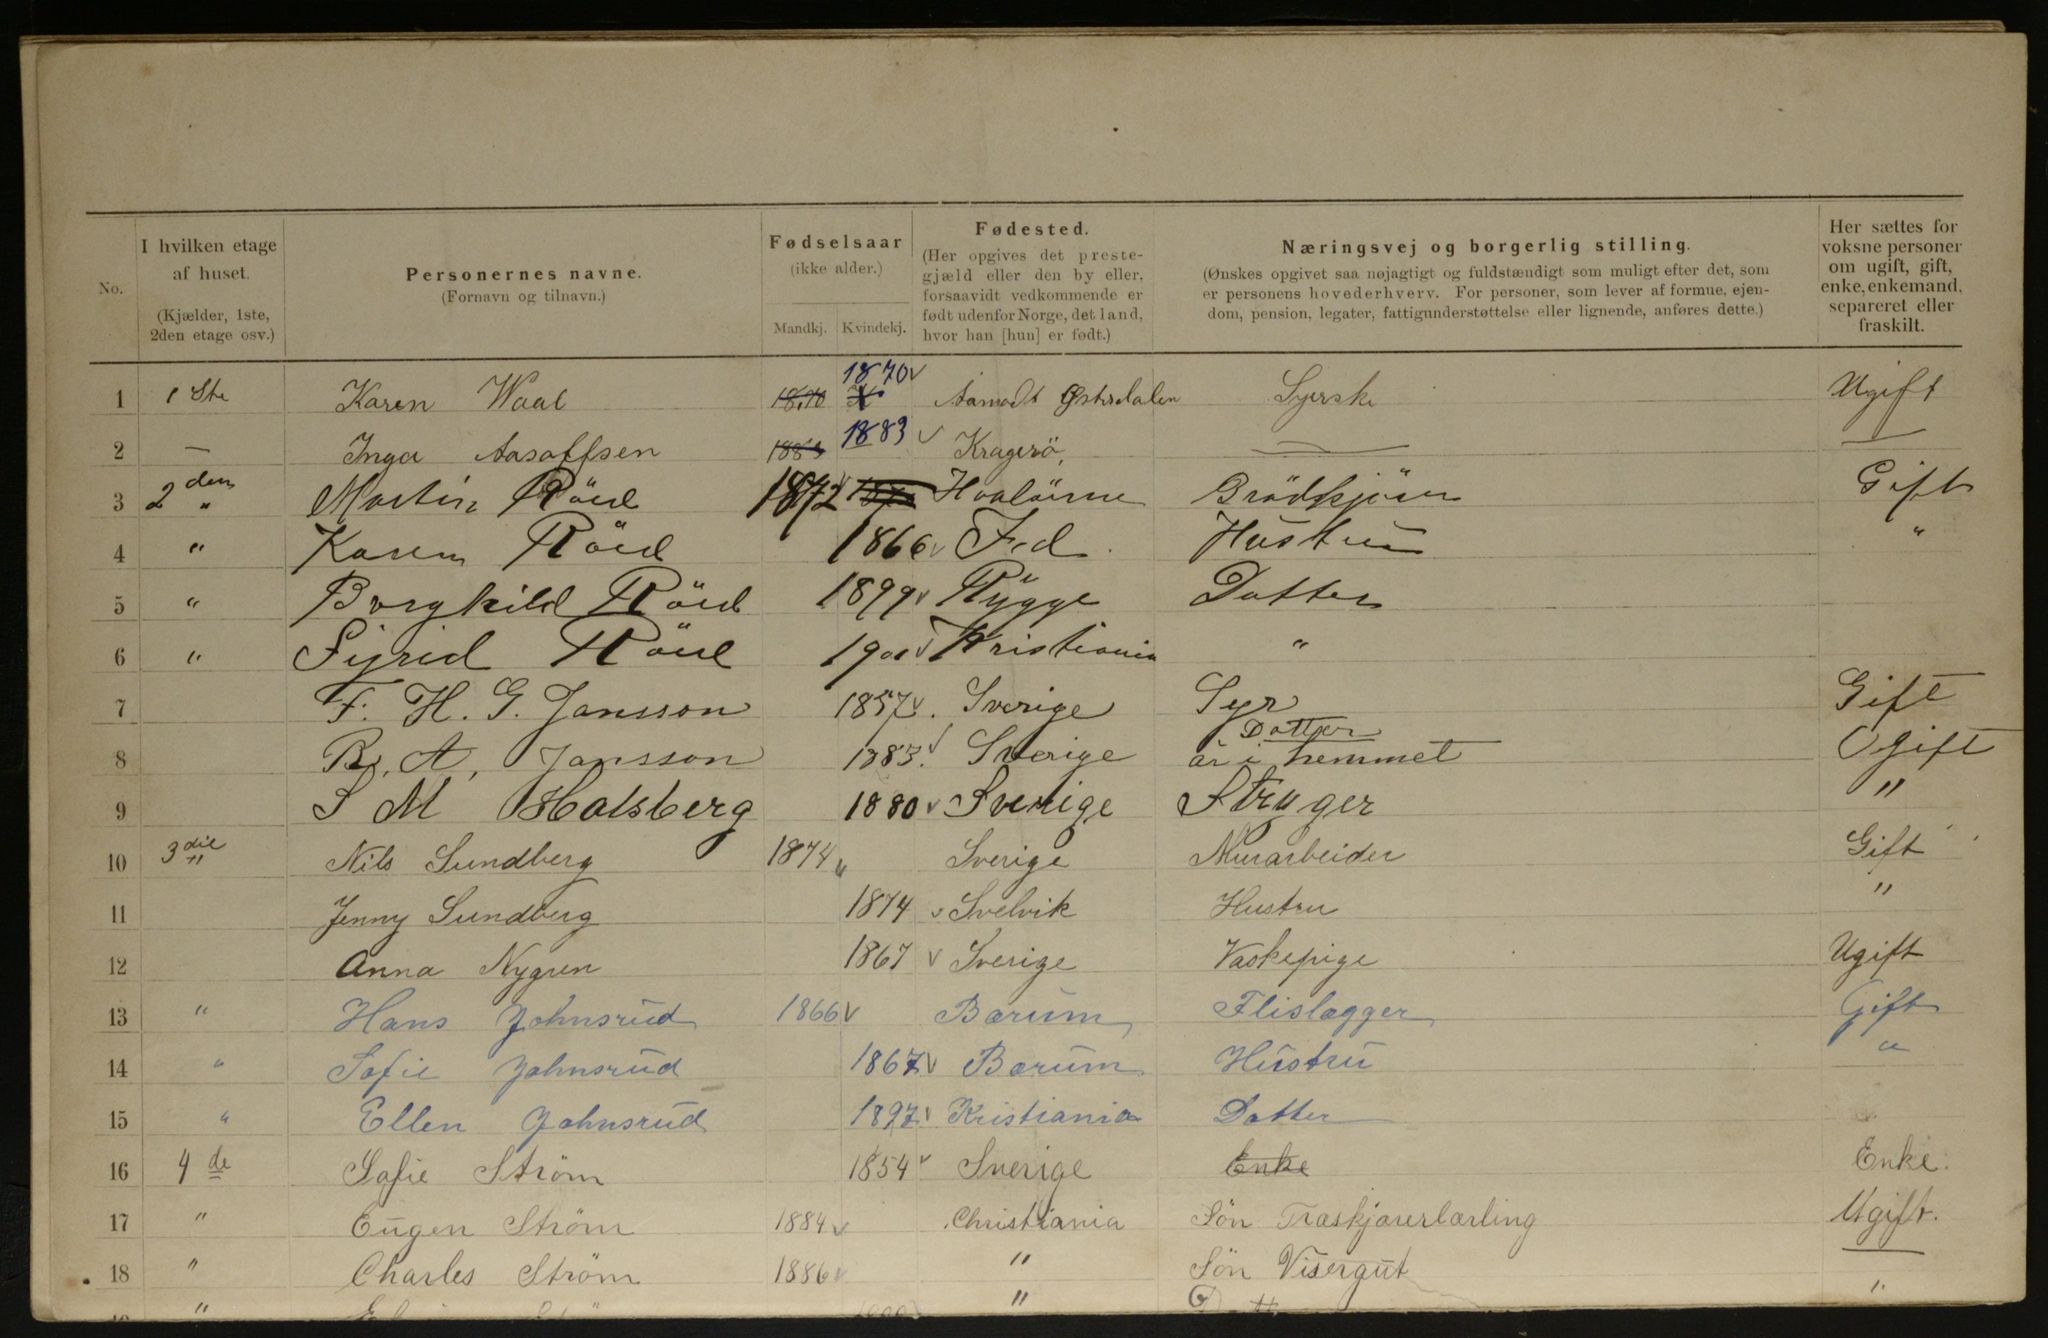 No.
I hvilken etage
af huset.
(Kjælder, 1ste,
2den etage osv.)
Personernes navne.
(Fornavn og tilnavn.)
Fødselsaar
(ikke alder.)
Mandkj. Kvindekj.
Fødested.
(Her opgives det preste-
gjæld eller den by eller,
forsaavidt vedkommende er
født udenfor Norge, det land,
hvor han [hun] er født.)
Næringsvej og borgerlig stilling.
(Ønskes opgivet saa nøjagtigt og fuldstændigt som muligt efter det, som
er personens hovederhverv. For personer, som lever af formue, ejen-
dom, pension, legater, fattigunderstøttelse eller lignende, anføres dette.)
Her sættes for
voksne personer
om ugift, gift,
enke, enkemand,
separeret eller
fraskilt.
1 1ste Karen Waal 1870 1870 Aamodt Østerdalen Syerske Ugift
2 — Inga Aasoffsen 1883 1883 Kragerö, — —
3 2den " Martin Röed 1872 Hvalörne Brödkjörer Gift
4 " Karen Röed 1866 Fed. Hustru "
5 " Borghild Röed 1899 Rygge Datter
6 " Sigrid Röed 1901 Kristiania "
7 F. H. G. Jansson 1857. Sverige Syr Gift
8 R. A. Jansson 1883. Sverige Dotter
är i hemmet Ogift
9 S M Holsberg 1880 Sverige Stryger "
10 3die " Nils Sundberg 1874 Sverige Murarbeider Gift
11 Jenny Sundberg 1874 Svelvik Hustru "
12 Anna Nygren 1867 Sverige Vaskepige Ugift
13 " Hans Johnsrud 1866 Bærum Flislægger Gift
14 " Sofie Johnsrud 1867 Bærum Hustru "
15 " Ellen Johnsrud 1897 Kristiania Datter
16 4de Sofie Ström 1854 Sverige Enke Enke.
17 " Eugen Ström 1884 Christiania Sön Træskjærerlærling Ugift.
18 " Charles Ström 1886 " Sön Visergut "
" "